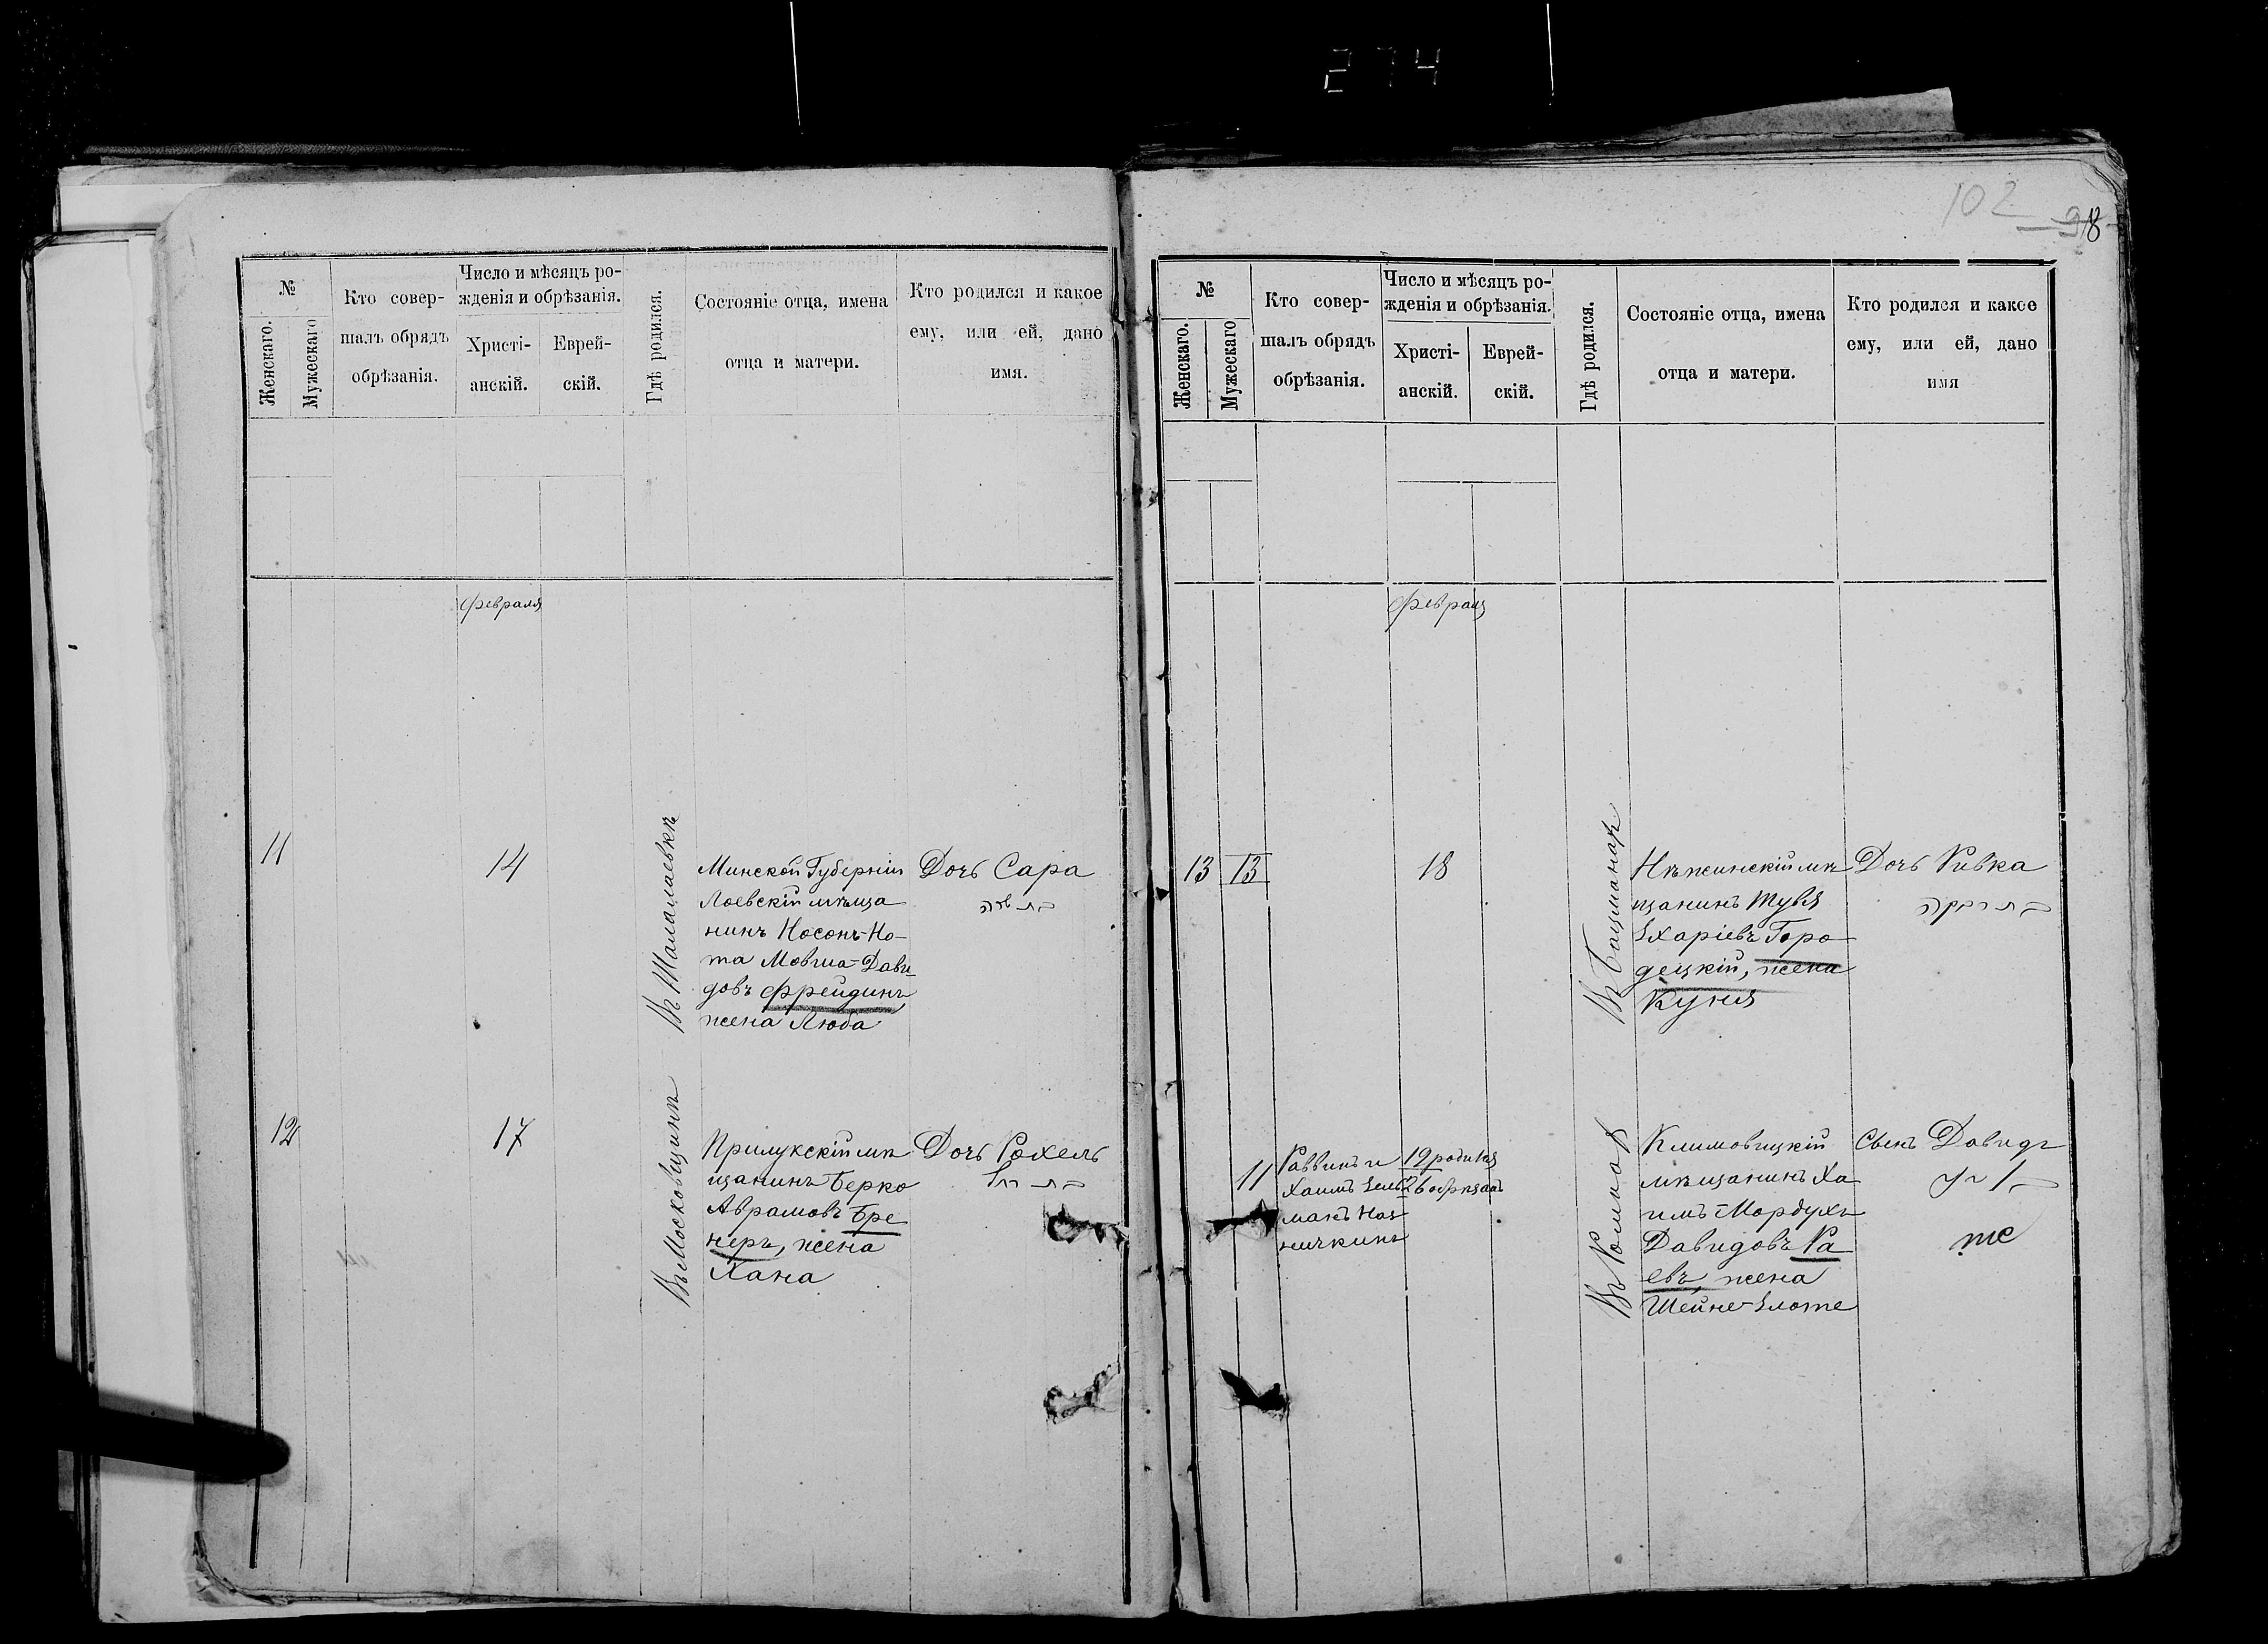 274
102
98
№
Женскаго.
Мужескаго
Кто совер-
шалъ обрядъ
обрѣзанія.
Число и мѣсяцъ ро-
жденія и обрѣзанія.
Христі-
анскій.
Еврей-
скій.
Гдѣ родился.
Состояніе отца, имена
отца и матери.
Кто родился и какое
ему, или ей, дано
имя.
февраля
11
14
Въ Талалаевкѣ
Минской Губерніи
Лоевскій мѣща
нинъ Носонъ-Но-
та Мовша-Дави
довъ Фрейдинъ
жена Люба
Дочь Сара
12
17
Въ Московщинѣ
Прилукскій мѣ
щанинъ Берко
Аврамовъ Бре
неръ, жена
Хана
Дочь Рохель
№
Женскаго.
Мужескаго
Кто совер-
шалъ обрядъ
обрѣзанія.
Число и мѣсяцъ ро-
жденія и обрѣзанія.
Христі-
анскій.
Еврей-
скій.
Гдѣ родился.
Состояніе отца, имена
отца и матери.
Кто родился и какое
ему, или ей, дано
имя
февраля
13
13
18
Въ Бацманах
Нѣжинскій мѣ
щанинъ Тувія
Зхаріевъ Горо
децкій, жена
Куня
Дочь Ривка
11
Раввинъ и
Хаимъ
19 родился
26 обрѣзанъ
Въ Ромнах
Климовицкій
мѣщанинъ Ха
имъ-Мордухъ
Давидовъ Ра
евъ, жена
Шейне-Злоте
Сынъ Давидъ